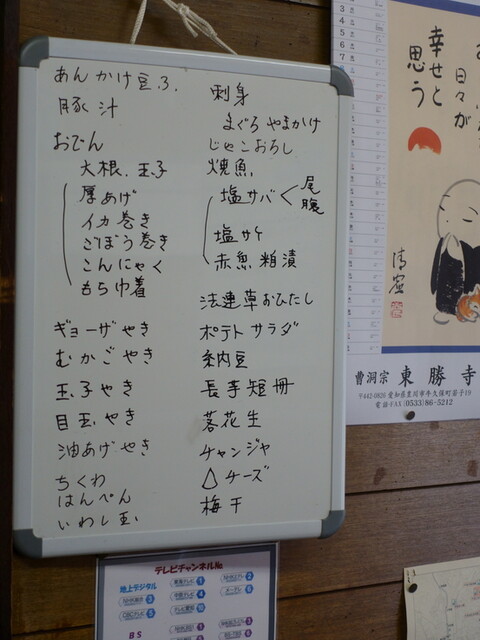 あんかけ豆ふ.
豚汁
おでん
大根、玉子
厚あげ
イカ巻き
ごぼう巻き
こんにゃく
もち巾着
ギョーザやき
むかごやき
玉子やき
目玉やき
油あげやき
ちくわ
はんぺん
いわし玉
刺身
まぐろやまかけ
じゃこおろし
焼魚
塩サバ<尾
腹
塩サケ
赤魚粕漬
法連草おひたし
ポテトサラダ
納豆
長芋短冊
落花生
チャンジャ
△チーズ
梅干
日々が
幸せと
思う
曹洞宗 東勝寺
〒442-0826 愛知県豊川市牛久保町若子19
電話+FAX (0533)86-5212
テレビチャンネルNo
地上デジタル
BS